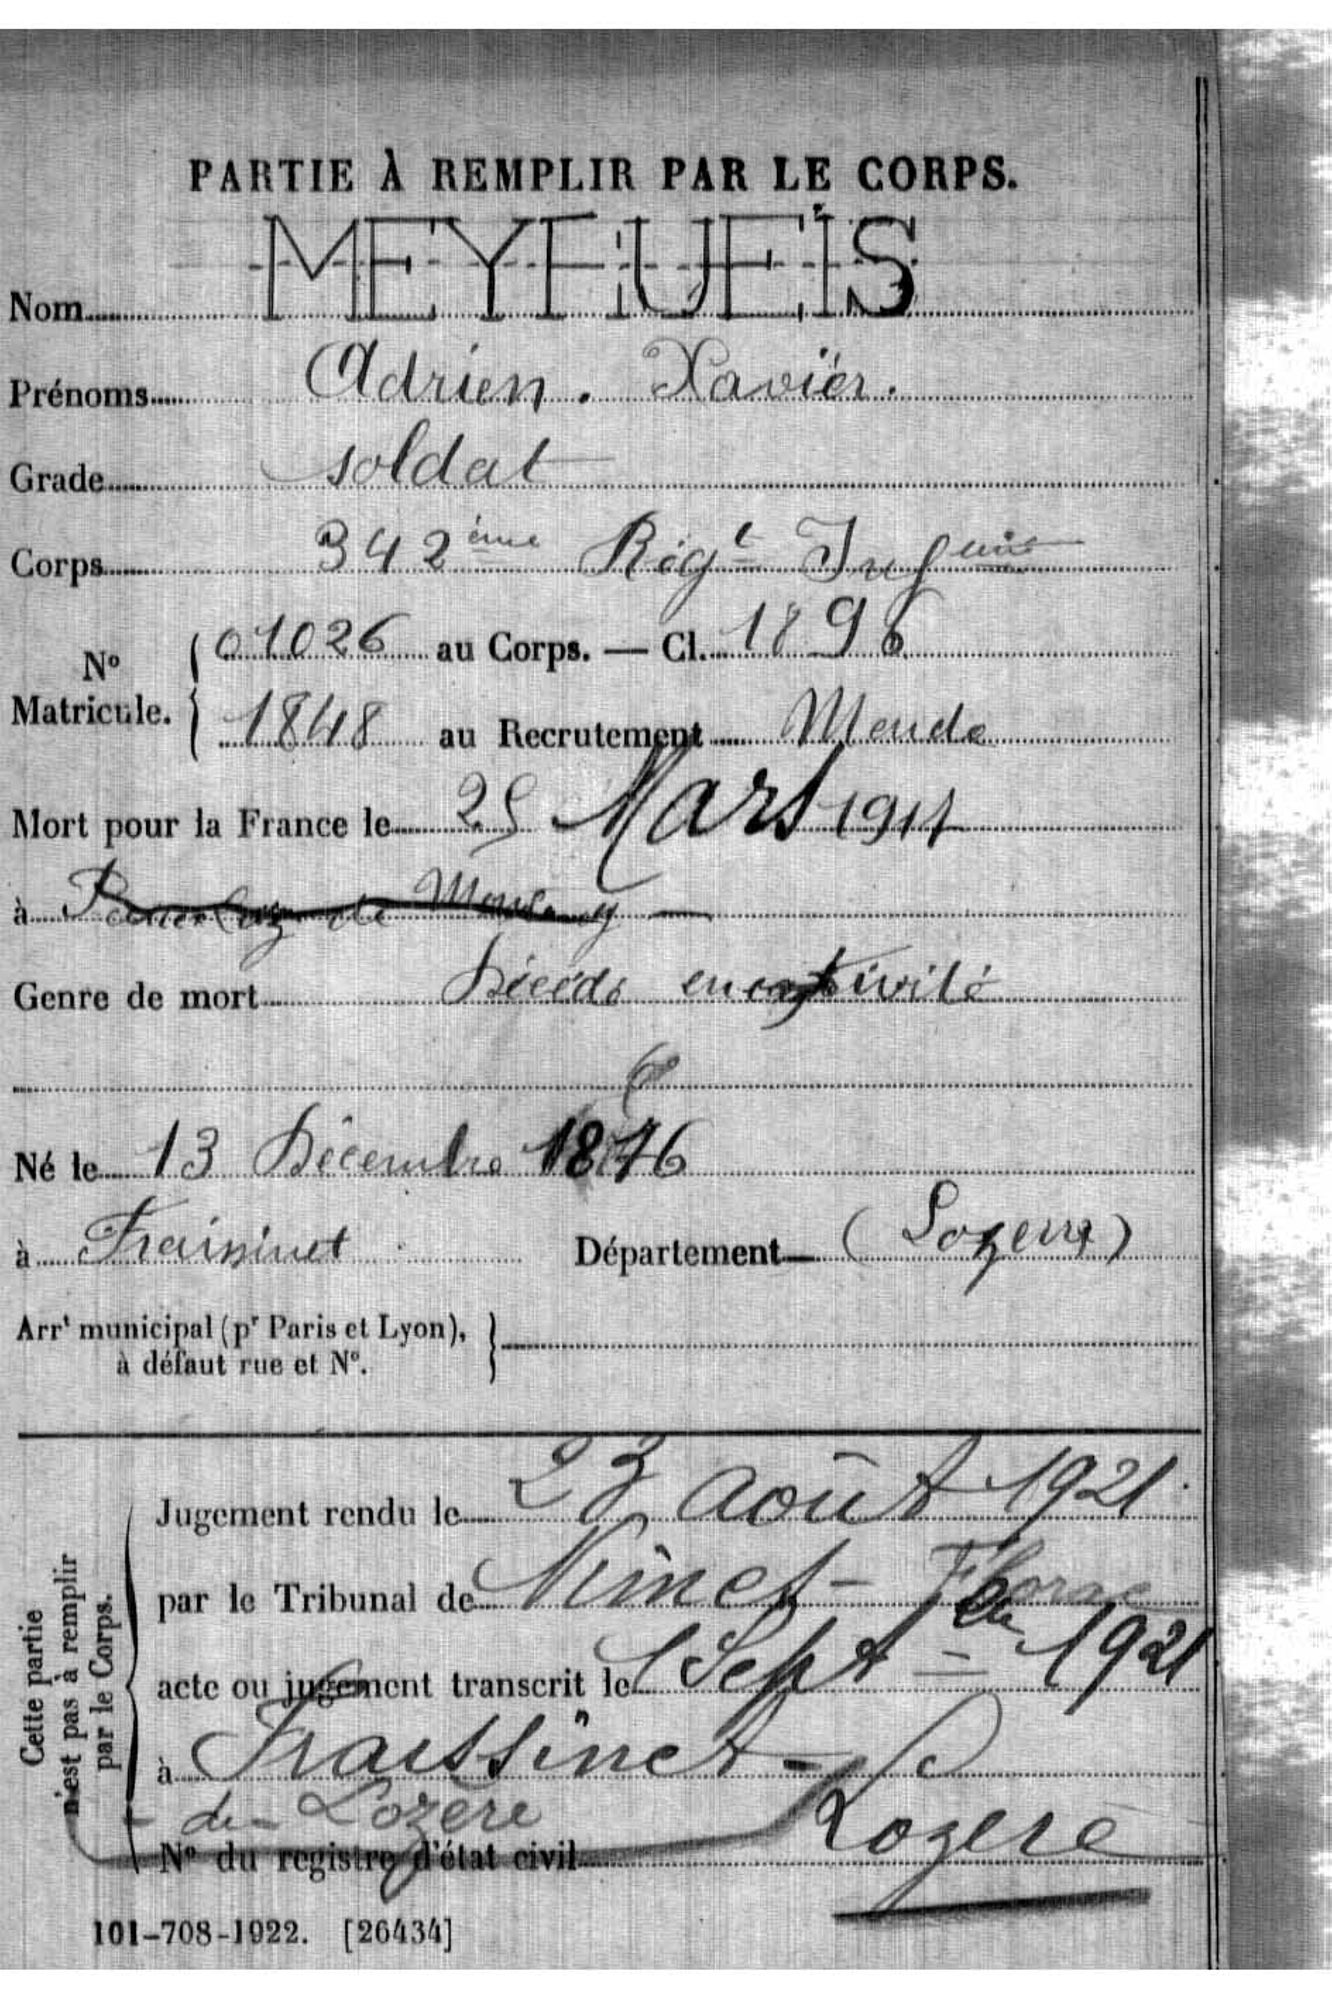 PARTIE À REMPLIR PAR LE CORPS.
Nom MEYRUEIS
Prénoms Adrien. Xavier.
Grade soldat
Corps 342ème Régt Infanterie
No Matricule. 01026 au Corps. — Cl. 1896
1848 au Recrutement Mende
Mort pour la France le 25 Mars 191
à de
Genre de mort Décédé en captivité
Né le 13 Décembre 1876
à Fraissinet Département (Lozère)
Arrt municipal (pr Paris et Lyon),
à défaut rue et No.
Cette partie
n'est pas à remplir
par le Corps.
Jugement rendu le 23 Août 1921.
par le Tribunal de Nîmes - Florac
acte ou jugement transcrit le 1 Sept - 1921
à Fraissinet -
- de - Lozère Lozère
No du registre d'état civil
101-708-1922. [26434]